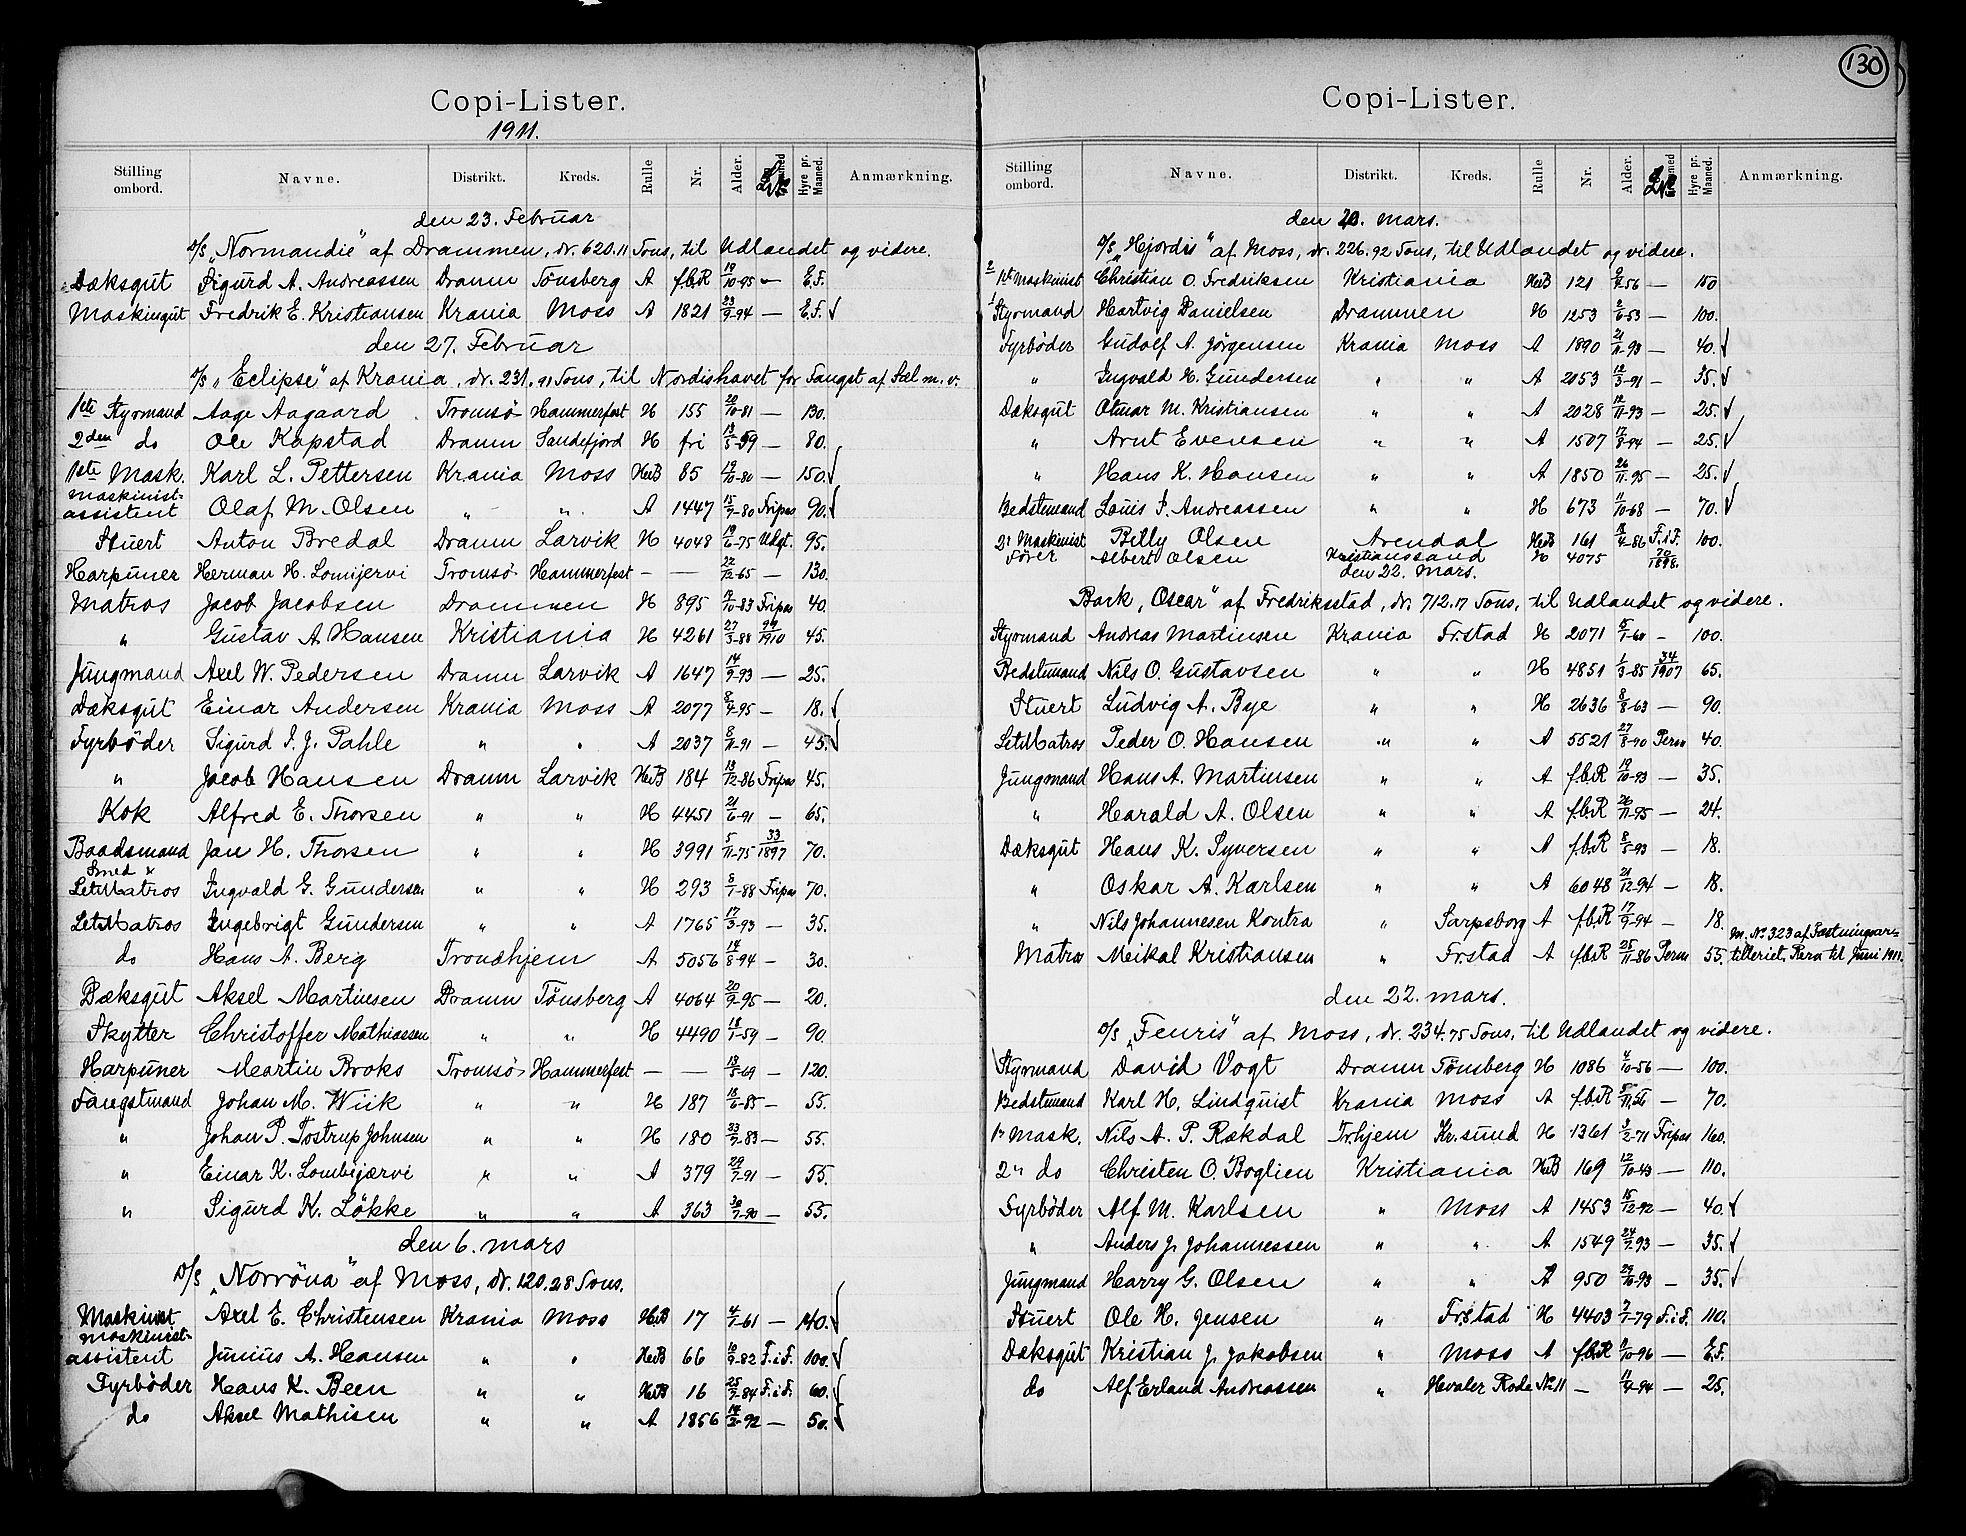 Copi-Lister.
1911.
Stilling ombord. Navne. Distrikt. Kreds. Rulle Nr. Alder. Hyre pr. Maaned. Anmærkning.
den 23. Februar
D/S „Normandie" af Drammen, dr. 620.11 Tons, til Udlandet og videre.
Dæksgut Sigurd A. Andreassen Dramn Tønsberg A f.b.R 19/10-95 — E.F.
Maskingut Fredrik E. Kristiansen Krania Moss A 1821 23/9-94 — E.F. √
den 27. Februar
D/S „Eclipse" af Krania, dr. 231.91 Tons, til Nordishavet for Fangst af Sæl m. v.
1ste Styrmand Aage Aagaard Tromsø Hammerfest H 155 20/10-81 — 130.
2den do Ole Kapstad Dramn Sandefjord H fri 13/5-59 — 80.
1ste Mask. Karl L. Pettersen Krania Moss HuB 85 19/10-80 — 150. √
Maskinist-assistent Olaf M. Olsen „ „ A 1447 15/7-80 Fripas 90. √
Stuert Anton Bredal Dramn Larvik H 4048 19/6-75 Udgt. 95.
Harpuner Herman H. Lomijervi Tromsø Hammerfest — — 22/12-65 — 130.
Matros Jacob Jacobsen Drammen H 895 /10-83 Fripas 40.
„ Gustav A. Hansen Kristiania H 4261 27/3-88 /1910 45.
Jungmand Axel W. Pedersen Dramn Larvik A 1647 14/9-93 — 25.
Dæksgut Einar Andersen Krania Moss A 2077 8/4-95 — 18. √
Fyrbøder Sigurd I. J. Pahle „ „ A 2037 8/11-91 — 45. √
„ Jacob Hansen Dramn Larvik HuB 184 13/12-86 Fripas 45.
Kok Alfred E. Thorsen „ „ H 4451 21/6-91 — 65.
Baadsmand Jan H. Thorsen „ „ H 3991 5/11-75 33/1897 70.
Smed & LetMatros Ingvald G. Gundersen „ „ H 293 8/1-88 Fripas 70.
LetMatros Ingebrigt Gundersen „ „ A 1765 17/3-93 — 35.
do Hans A. Berg Trondhjem A 5056 14/8-94 — 30.
Dæksgut Aksel Martinsen Dramn Tönsberg A 4064 20/9-95 — 20.
Skytter Christoffer Mathiassen „ „ H 4490 18/1-59 — 90.
Harpuner Martin Broks Tromsø Hammerfest — — 13/5-69 — 120.
Fangstmand Johan M. Wiik „ „ H 187 18/6-85 — 55.
„ Johan P. Tostrup Johnsen „ „ H 180 23/7-83 — 55.
„ Einar K. Lombijærvi „ „ A 379 29/7-91 — 55.
„ Sigurd K. Løkke „ „ A 363 30/7-90 — 55.
den 6. mars
D/S „Norröna" af Moss, dr. 120.28 Tons.
Maskinist Axel E. Christensen Krania Moss HuB 17 4/7-61 — 140. √
Maskinist-assistent Junius A. Hansen „ „ HuB 66 10/9-82 F.i.F. 100. √
Fyrbøder Hans K. Been „ „ HuB 16 25/7-84 F.i.F. 60. √
do Aksel Mathisen „ „ A 1856 14/2-92 — 50. √
130
Copi-Lister.
Stilling ombord. Navne. Distrikt. Kreds. Rulle Nr. Alder. Hyre pr. Maaned. Anmærkning.
den 20. mars.
D/S „Hjordis" af Moss, dr. 226.92 Tons, til Udlandet og videre.
2 1ste Maskinist Christian O. Fredriksen Kristiania HuB 121 -56 — 150
1 Styrmand Hartvig Danielsen Drammen H 1253 2/6-53 — 100.
Fyrbøder Gudolf A. Jörgensen Krania Moss A 1890 21/11-93 — 40. √
„ Ingvald H. Gundersen „ „ A 2053 12/3-91 — 35. √
Dæksgut Otmar M. Kristiansen „ „ A 2028 12/11-93 — 25. √
„ Arnt Evensen „ „ A 1507 17/8-94 — 25. √
„ Hans K. Hansen „ „ A 1850 26/11-95 — 25. √
Bedstemand Louis F. Andreassen „ „ H 673 11/10-68 — 70. √
2' Maskinist Billy Olsen Arendal HuB 161 18/4-86 F.i.F. 100.
Fører Albert Olsen Kristianssand H 4075 /1898.
den 22. Mars.
Bark „Oscar" af Fredriksstad, dr. 712.17 Tons, til Udlandet og videre.
Styrmand Andreas Martinsen Krania Fr.stad H 2071 5/1-60 — 100.
Bedstemand Nils O. Gustavsen „ „ H 4851 1/3-85 34/1907 65.
Stuert Ludvig A. Bye „ „ H 2636 8/8-63 — 90.
LetMatros Peder O. Hansen „ „ A 5521 27/8-90 Perm 40.
Jungmand Hans A. Martinsen „ „ A f.b.R 19/10-93 — 35.
„ Harald A. Olsen „ „ A f.b.R 26/11-95 — 24.
Dæksgut Hans K. Syversen „ „ A f.b.R 8/5-93 — 18.
„ Oskar A. Karlsen „ „ A 6048 21/12-94 — 18.
„ Nils Johannesen Kontra „ Sarpsborg A f.b.R 17/9-94 — 18.
Matros Meikal Kristiansen „ Fr.stad A f.b.R 25/11-86 Perm 55. M. No 323 af Fæstningsar-
tilleriet. Perm til Juni 1911.
den 22. mars.
D/S „Fenris" af Moss, dr. 234.75 Tons, til Udlandet og videre.
Styrmand David Vogt Dramn Tönsberg H 1086 4/10-56 — 100.
Bedstemand Karl H. Lindquist Krania Moss A f.b.R — 70.
1' Mask. Nils A. P. Rækdal Tr.hjem Kr.sund H 1361 3/2-71 Fripas 160.
2" do Christen O. Boglien Kristiania HuB 169 12/10-43 — 110.
Fyrbøder Alf M. Karlsen „ Moss A 1453 15/12-92 — 40. √
„ Anders J. Johannessen „ „ A 1549 24/7-93 — 35. √
Jungmand Harry G. Olsen „ „ A 950 29/10-93 — 35. √
Stuert Ole H. Jensen „ Fr.stad H 4403 7/7-79 F.i.F. 110.
Dæksgut Kristian J. Jakobsen „ Moss A f.b.R /10-96 — E.F.
do Alf Erland Andreassen „ Hvaler Rode No 11 — 11/4-94 — 25.